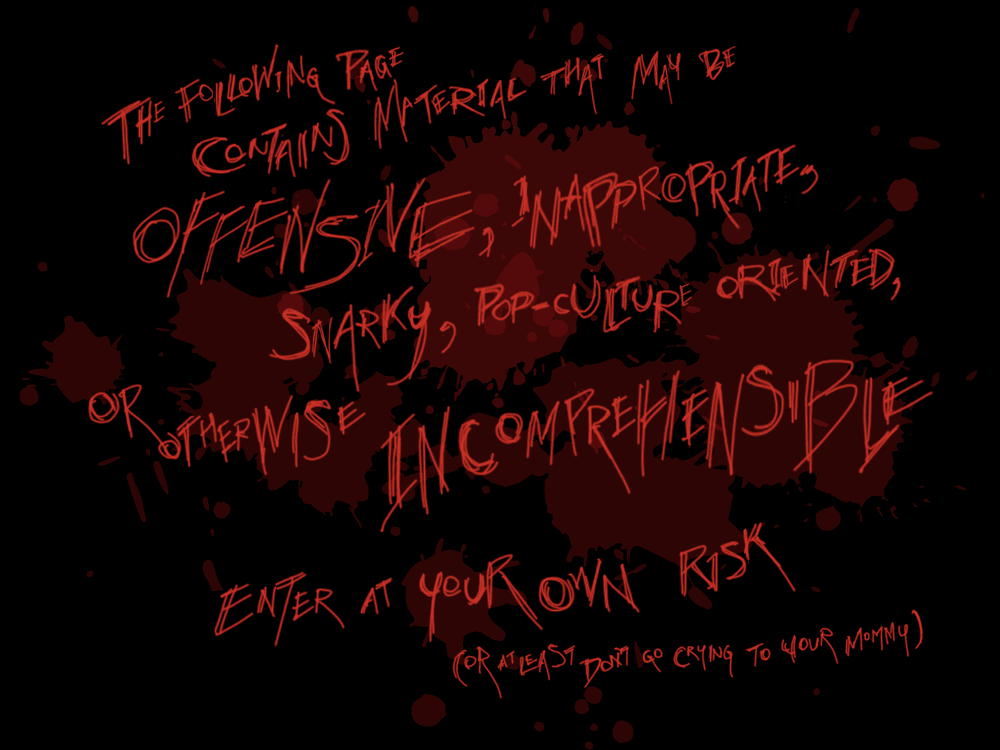 The Following Page
Contains Material that may be
Offensive, Inappropriate,
Snarky, Pop-culture oriented,
or otherwise Incomprehensible
Enter at your own risk
(or at least don't go crying to your mommy)